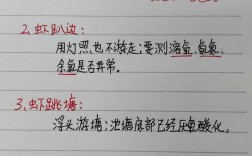 2、虾趴边：
用灯照也不游走；要测溶氧、氨氮、
余氯是否异常。
3、虾跳塘：
浮头游塘；池塘底部已经厌氧酸化。